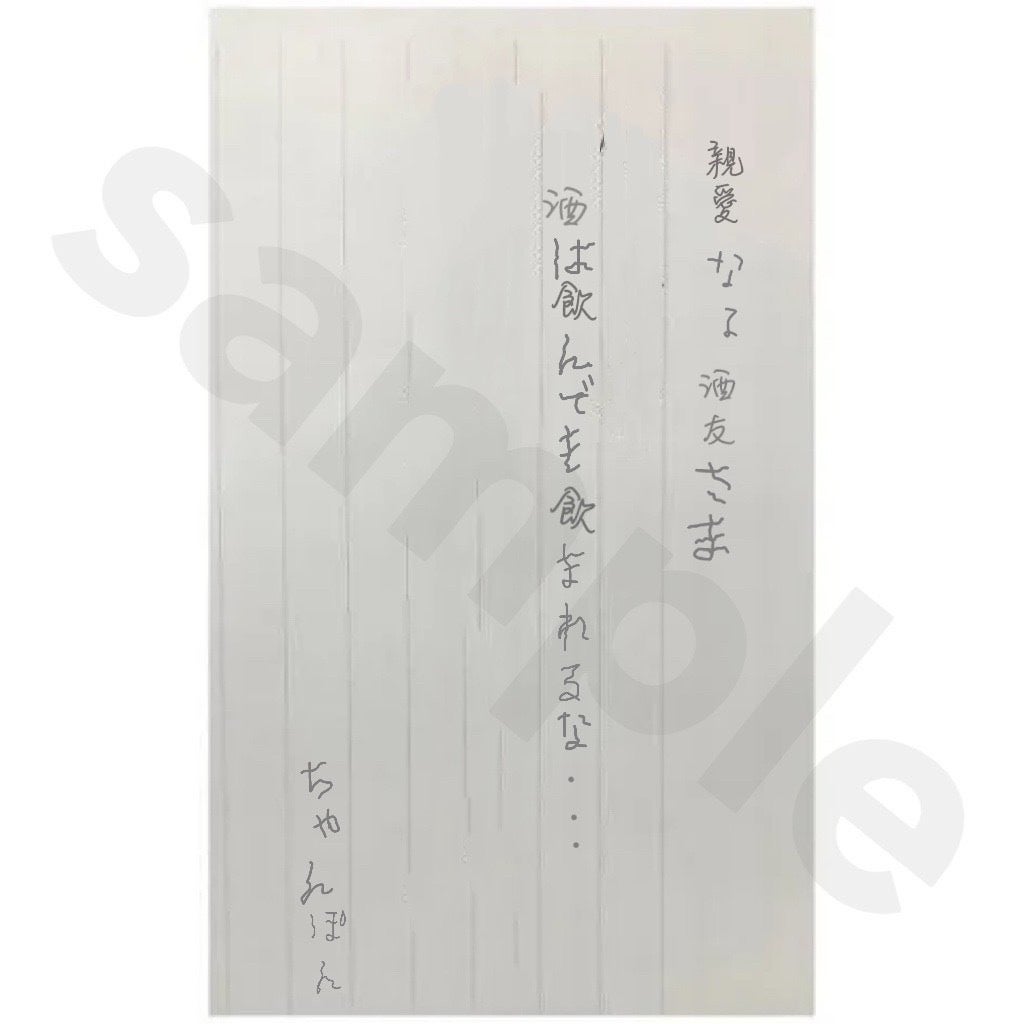 親愛なる酒友さま
酒は飲んでも飲まれるな・・・
ちゃんぽん
sample